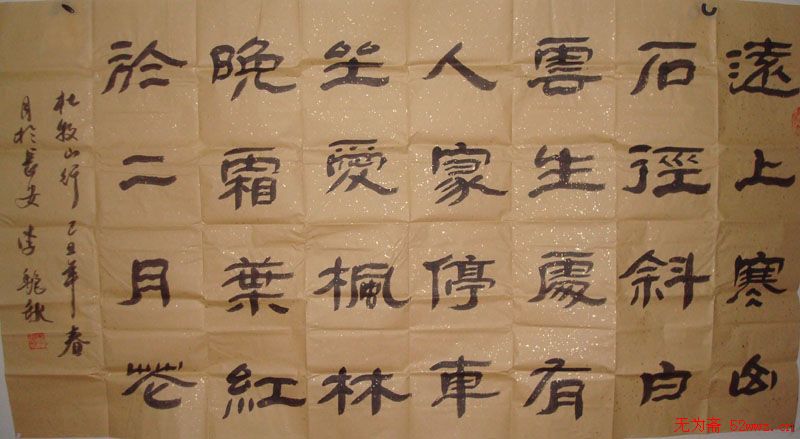 遠上寒山
石徑斜白
雲生處有
人家停車
坐愛楓林
晚霜葉紅
於二月花
杜牧山行 乙丑年春
月於長安 李
无为斋 52wwz.cn